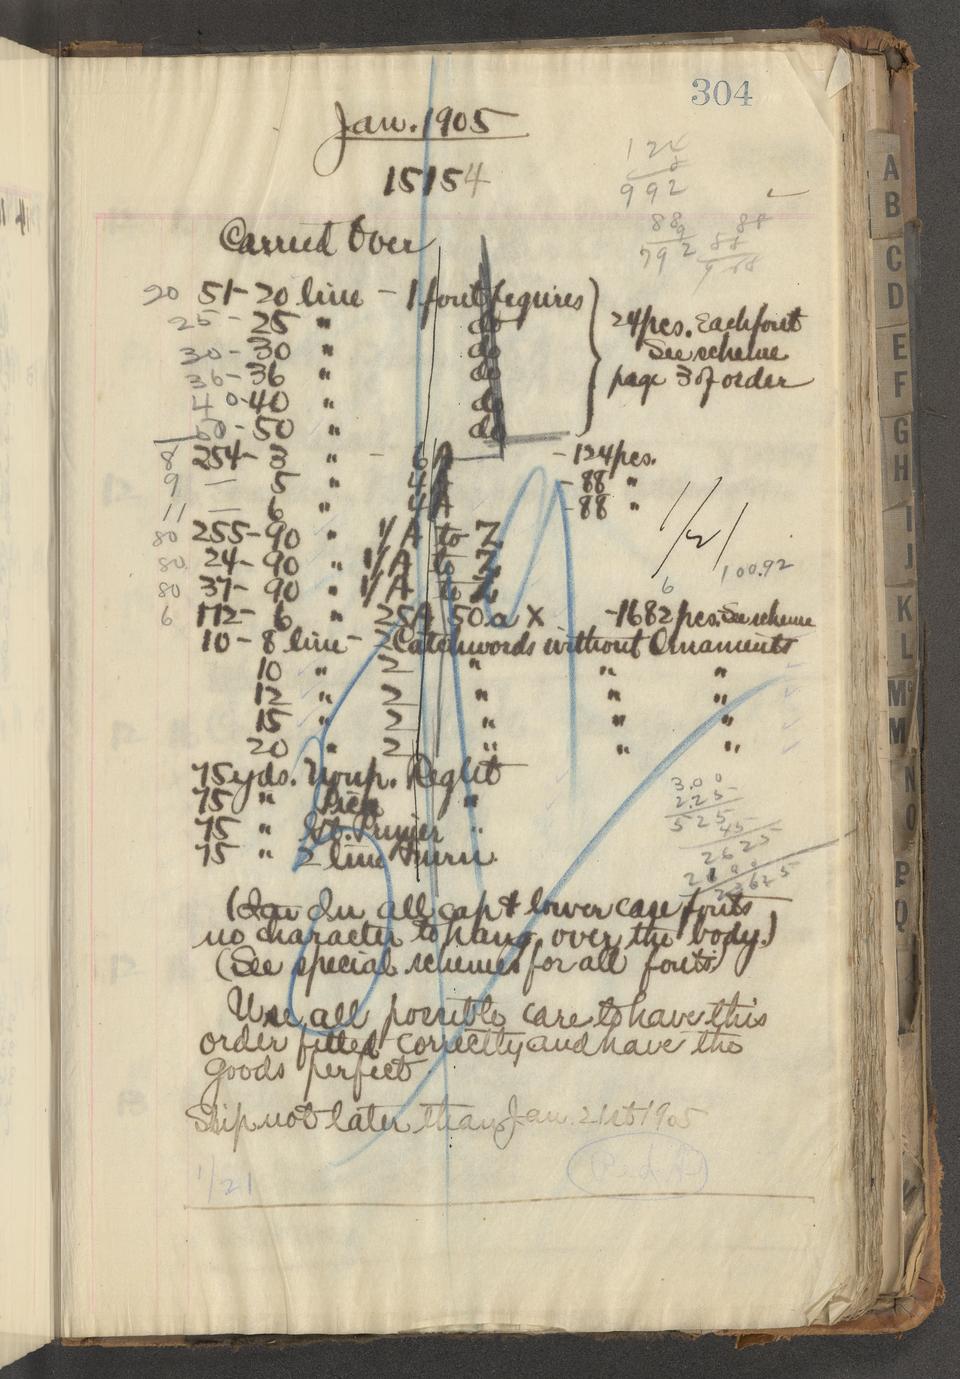 304
Jan. 1905
15154
124
8
992
88
9
792
88
Carried Over
20 51-20 line - 1 font figures
25 - 25 " do
30 - 30 " do
36 - 36 " do
40 - 40 " do
50 - 50 " do
24 pcs. Each font
See scheme
page 3 of order
8 254- 3 " - 6A - 124 pcs.
9 — 5 " 4A - 88 "
11 — 6 " 4A - 88 "
80 255-90 " 1/A to Z
80 24-90 " 1/A to Z
80 37-90 " 1/A to Z
6 100.92
6 112- 6 " 25A 50a X -1682 pcs. See scheme
10 - 8 line - 2 Catchwords without Ornaments
10 " 2 " " "
12 " 2 " " "
15 " 2 " " "
20 " 2 " " "
75 yds. Nonp. Reglet
75 " Pica "
75 " Gt. Primer "
75 " 2 line Furn.
3.00
2.25
525
45
2625
2100
23625
(In all cap & lower case fonts
no character to hang over the body.)
(See special schemes for all fonts)
Use all possible care to have this
order filled correctly and have the
goods perfect
Ship not later than Jan. 21st 1905
1/21
A
B
C
D
E
F
G
H
I
J
K
L
M
M
N
O
P
Q